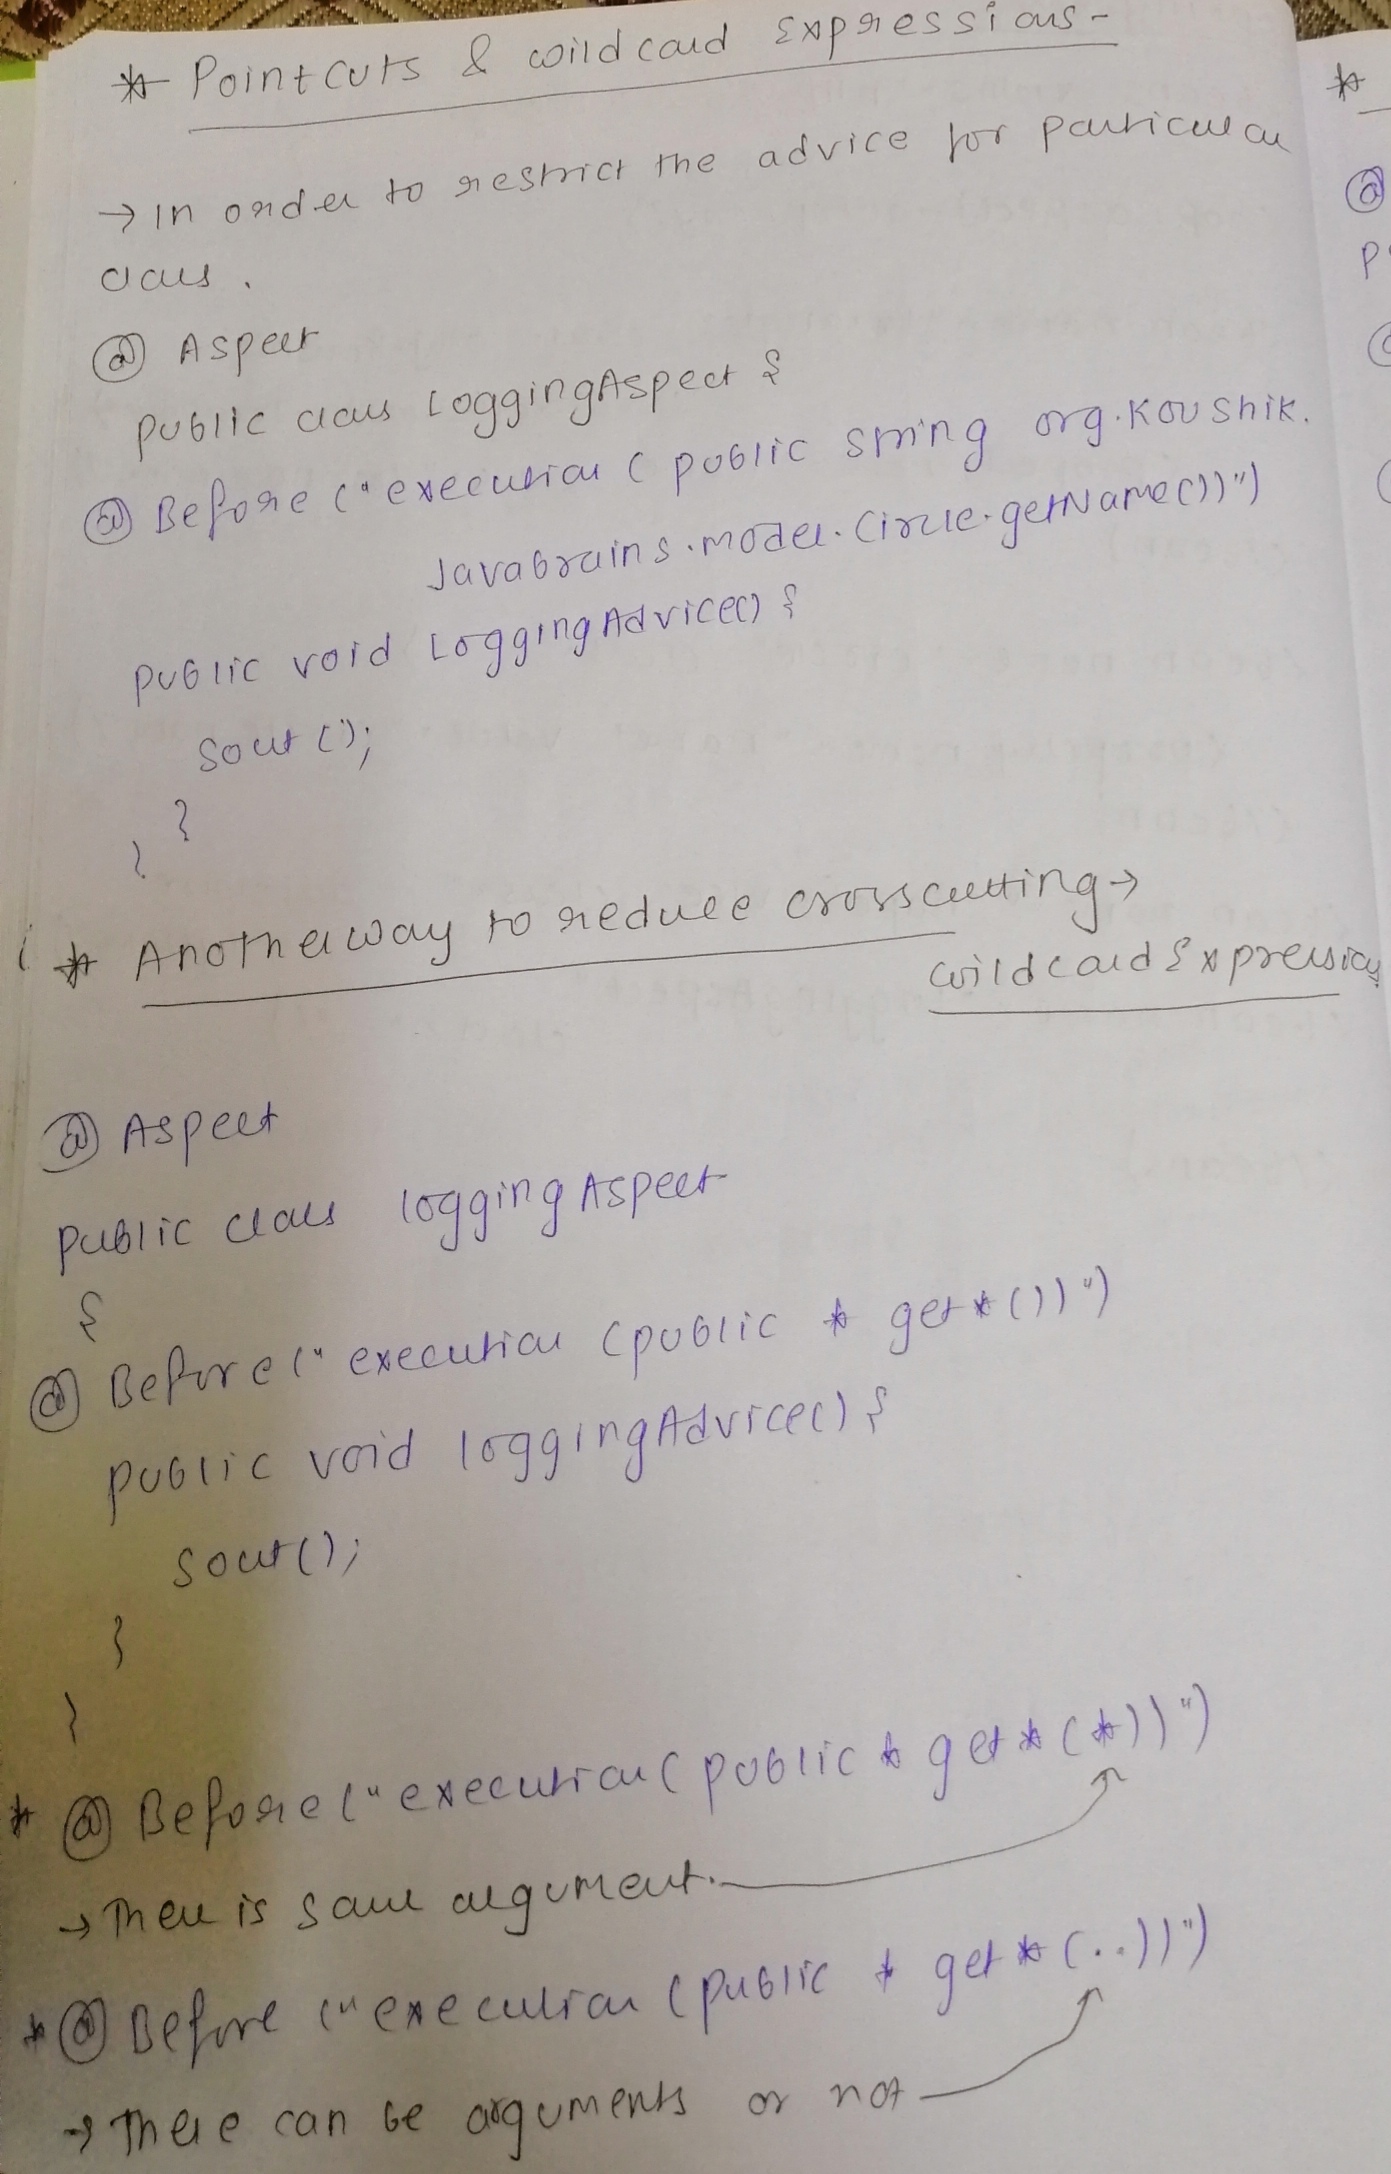 * Pointcuts & wildcard Expressions-
→ In order to restrict the advice for particular
class.
@ Aspect
public class LoggingAspect {
@ Before ("execution ( public string org.koushik.
Javabrains.model.Circle.getName())")
public void LoggingAdvice() {
sout (");
}
}
* Another way to reduce crosscutting →
wildcard Expression
@ Aspect
public class loggingAspect
{
@ Before ("execution (public * get*())")
public void loggingAdvice() {
sout();
}
}
* @ Before ("execution (public * get*(*))")
→ There is some argument.
* @ Before ("execution (public * get*(..))")
→ There can be arguments or not